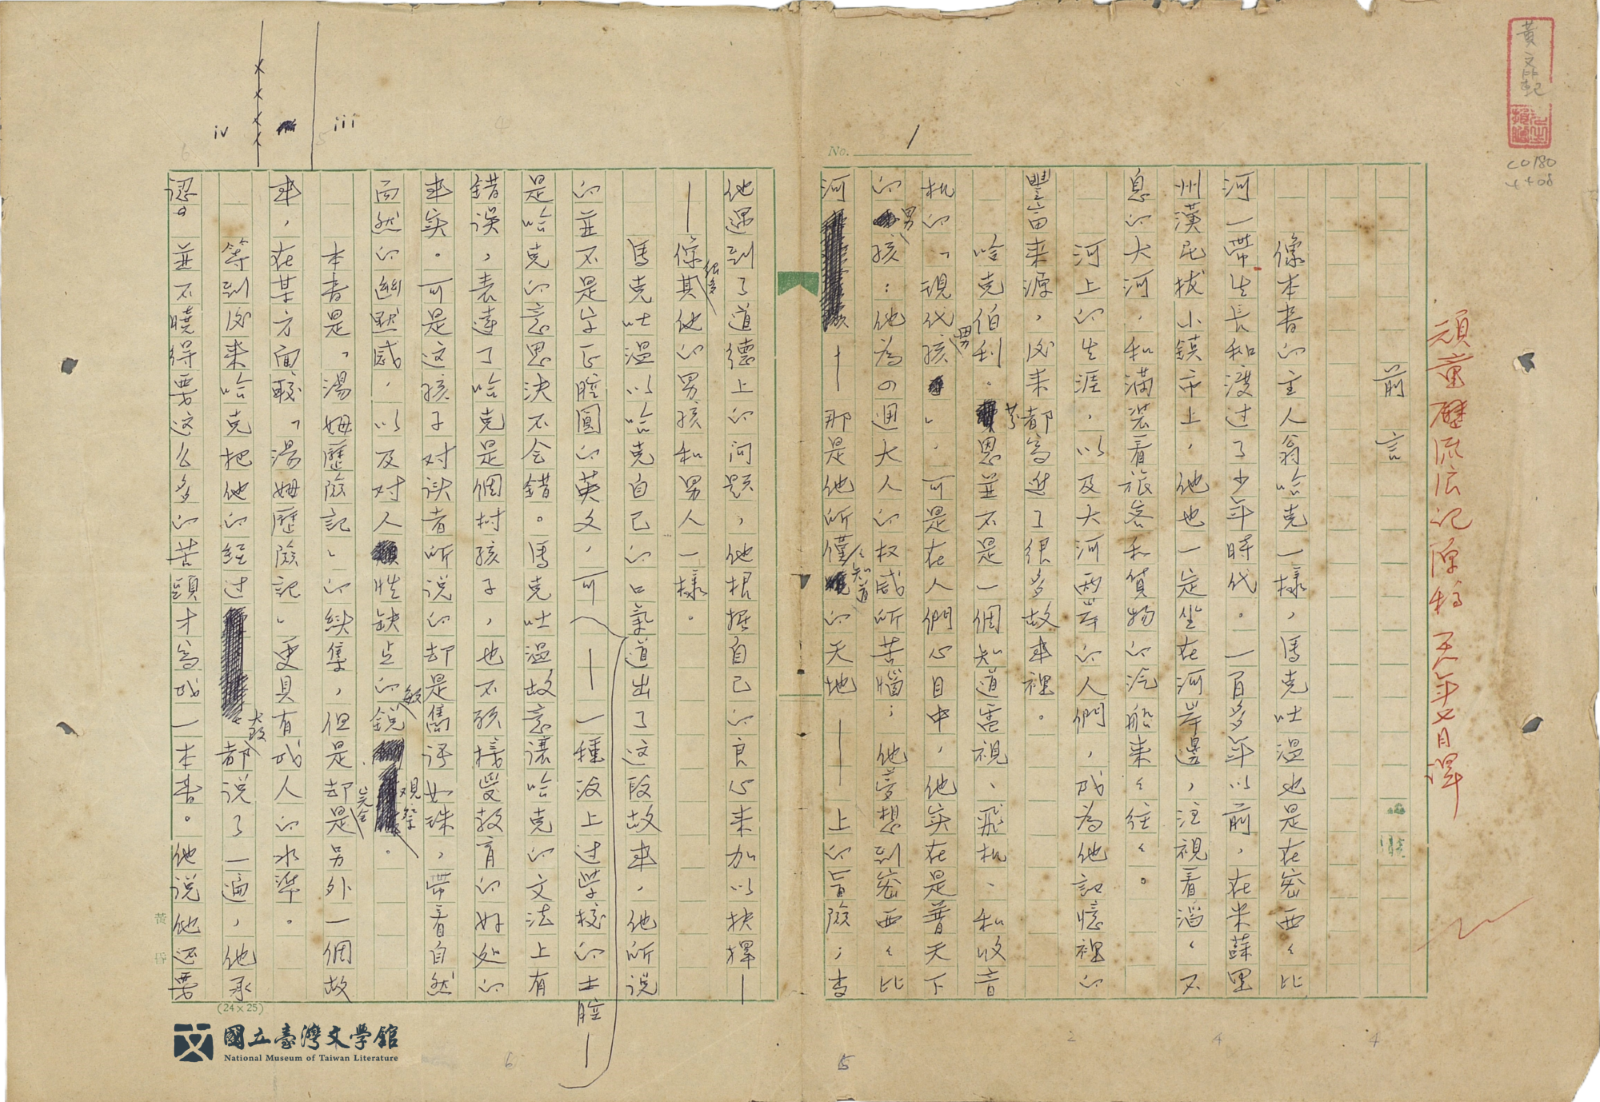 頑童歷流浪記原稿
黃文範
C0180
4+06
No. 1
前言
像本書的主人翁哈克一樣,馬克吐溫也是在密西々比
河一帶生長和渡过了少年時代。一百多年以前,在米蘇里
州漢尼拔小鎮市上,他也一定坐在河岸邊,注視着滔々不
息的大河,和滿裝着旅客和貨物的汽船来々往々。
河上的生涯,以及大河兩岸的人們,成為他記憶裡的
豐富来源,後来都寫進了很多故事裡。
哈克伯利.芬恩並不是一個知道電視、飛机、和收音
机的「現代男孩」,可是在人們心目中,他实在是普天下
的男孩:他為了週大人的权威所苦惱;他夢想到密西々比
河—那是他所僅々知道的天地—上的冒險;当
他遇到了道德上的问题,他根据自己的良心来加以抉擇—
—像其他的男孩和男人一樣。
馬克吐温以哈克自己的口氣道出了这段故事,他所说
的並不是字正腔圓的英文,可—一種沒上过学校的土腔—
是哈克的意思决不会錯。馬克吐温故意讓哈克的文法上有
錯误,表達了哈克是個村孩子,也不頂接受教育的好処的
事实。可是这孩子对读者所说的却是雋语如珠,帶着自然
而然的幽默感,以及对人性缺点的敏锐观察。
本書是「湯姆歷險記」的续集,但是,却是完全另外一個故
事,在某方面較「湯姆歷險記」更具有成人的水準。
等到後来哈克把他的経过大致都说了一遍,他承
認並不曉得要这么多的苦頭才寫成一本書。他说他还要
iii
iv
(24×25)
國立臺灣文學館
National Museum of Taiwan Literature